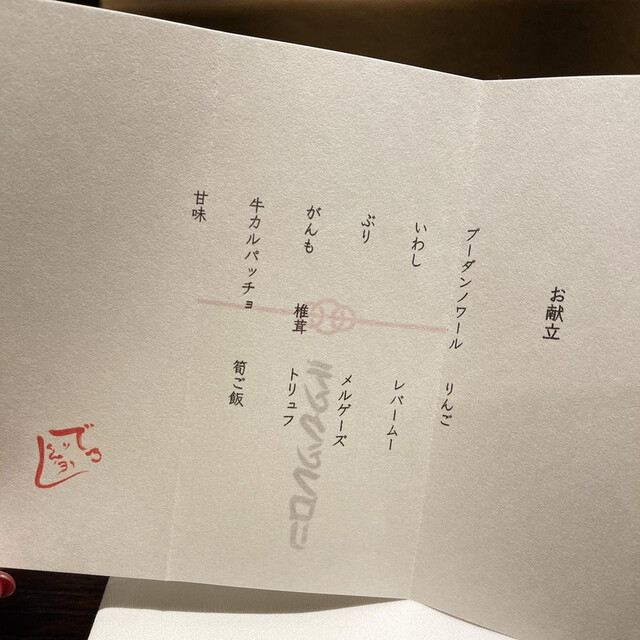 お献立
ブーダンノワール りんご
いわし レバームー
ぶり メルゲーズ
がんも 椎茸 トリュフ
牛カルパッチョ 筍ご飯
甘味